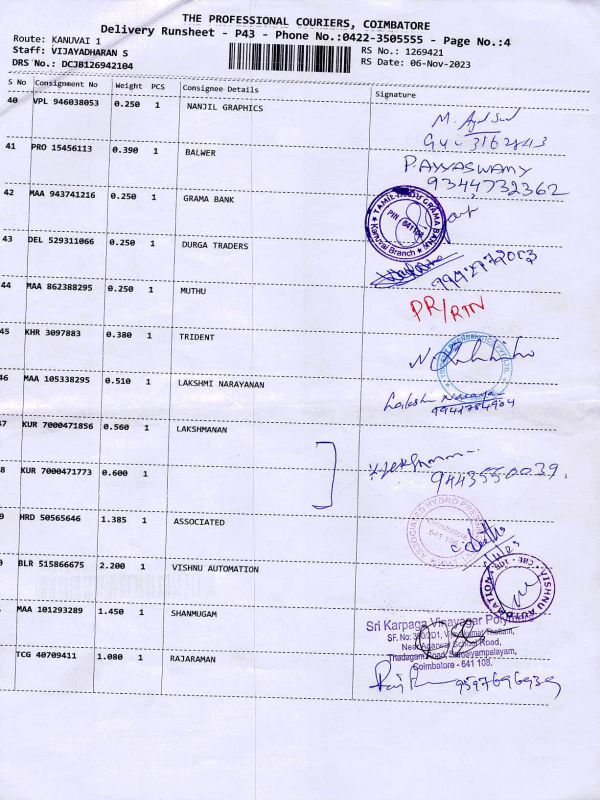 THE PROFESSIONAL COURIERS, COIMBATORE
Delivery Runsheet - P43 - Phone No.:0422-3505555 - Page No.:4
Route: KANUVAI 1
Staff: VIJAYADHARAN S
DRS No.: DCJB126942104
RS No.: 1269421
RS Date: 06-Nov-2023
S No Consignment No Weight PCS Consignee Details Signature
40 VPL 946038053 0.250 1 NANJIL GRAPHICS
41 PRO 15456113 0.390 1 BALWER
P.AYYASWAMY
9344732362
42 MAA 943741216 0.250 1 GRAMA BANK
TAMIL NADU GRAMA BANK
PIN 641108
Kanuvai Branch
43 DEL 529311066 0.250 1 DURGA TRADERS
44 MAA 862388295 0.250 1 MUTHU
PR/RTN
45 KHR 3097883 0.380 1 TRIDENT
46 MAA 105338295 0.510 1 LAKSHMI NARAYANAN
9941784904
47 KUR 7000471856 0.560 1 LAKSHMANAN
8 KUR 7000471773 0.600 1
9443550039.
9 HRD 50565646 1.385 1 ASSOCIATED
ASSOCIATED HYDRO
0 BLR 515866675 2.200 1 VISHNU AUTOMATION
VISHNU AUTOMATION
CBE - 108
MAA 101293289 1.450 1 SHANMUGAM
Sri Karpaga Vinayagar
SF. No:
Near Agarwal School Road,
Thadagam Road,
Coimbatore - 641 108.
TCG 40709411 1.080 1 RAJARAMAN
9597696939